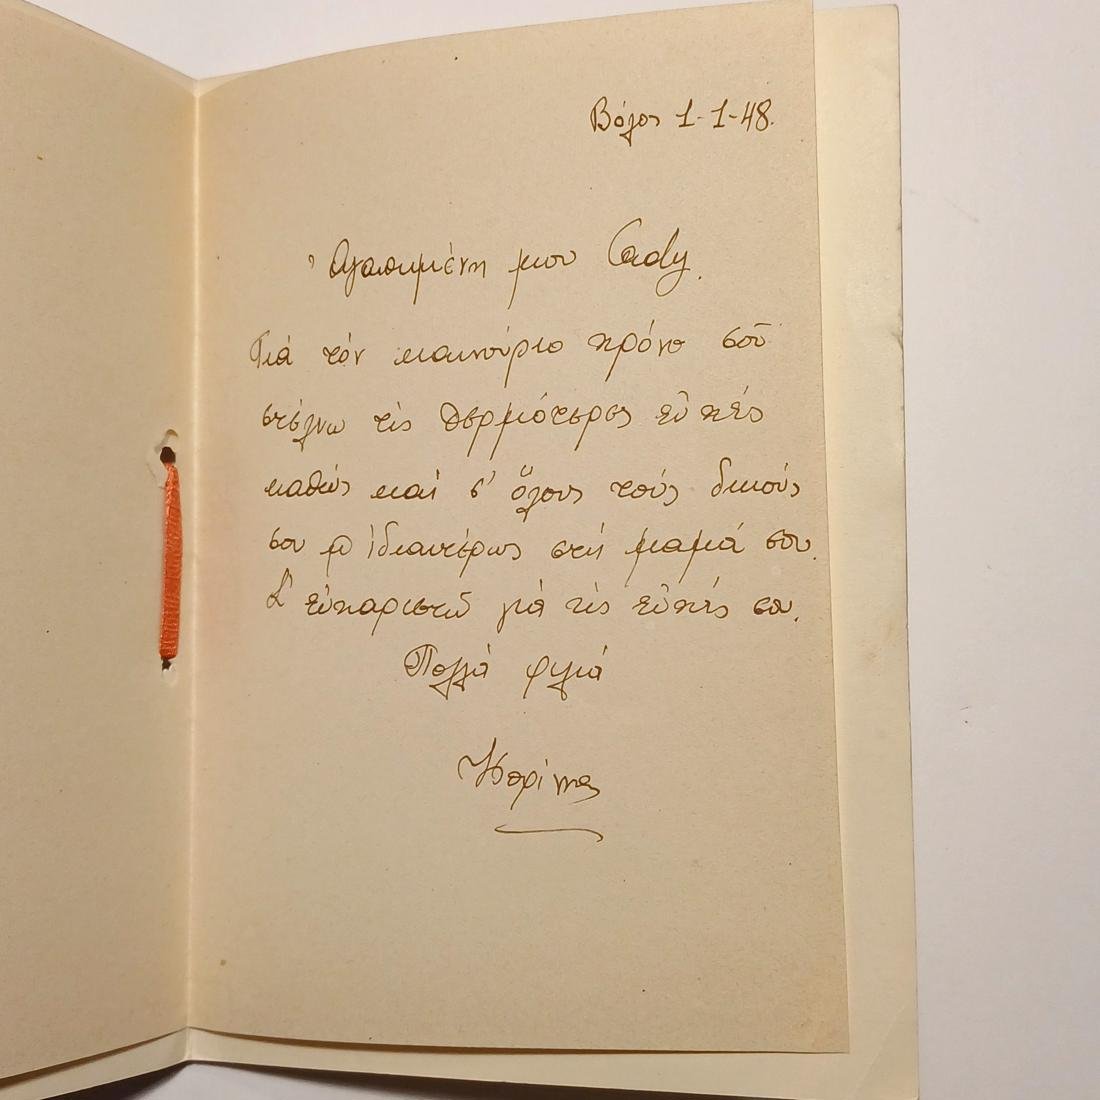 Βόλος 1-1-48.
Ἀγαπημένη μου Cady.
Γιά τόν καινούριο χρόνο σοῦ
στέλνω τίς θερμότερες εὐχές
καθώς καί σ' ὅλους τούς δικούς
σου ἰδιαιτέρως στή μαμά σου.
Σ' εὐχαριστῶ γιά τίς εὐχές σου.
Πολλά φιλιά